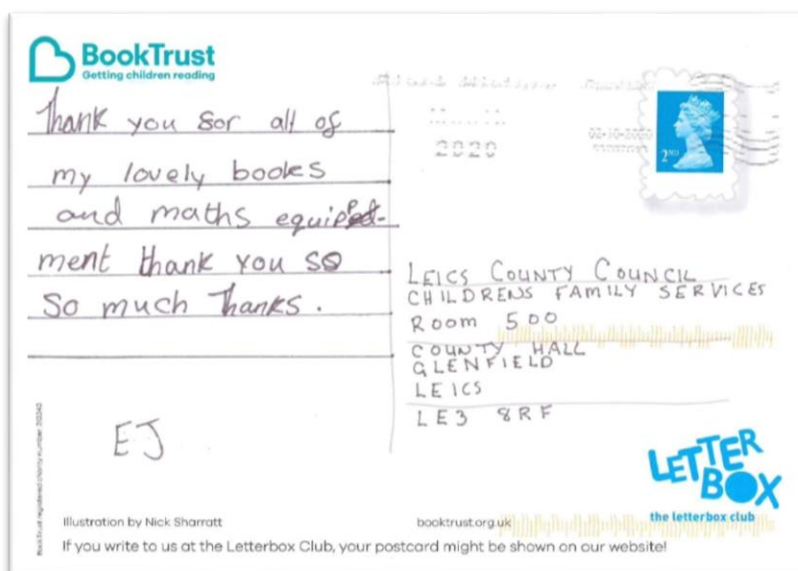 BookTrust
Getting children reading
2020
2ND
Thank you for all of
my lovely books
and maths equip
ment thank you so
So much Thanks.
EJ
LEICS COUNTY COUNCIL
CHILDRENS FAMILY SERVICES
ROOM 500
COUNTY HALL
GLENFIELD
LEICS
LE3 8RF
LETTER
BOX
the letterbox club
Illustration by Nick Sharratt
booktrust.org.uk
If you write to us at the Letterbox Club, your postcard might be shown on our website!